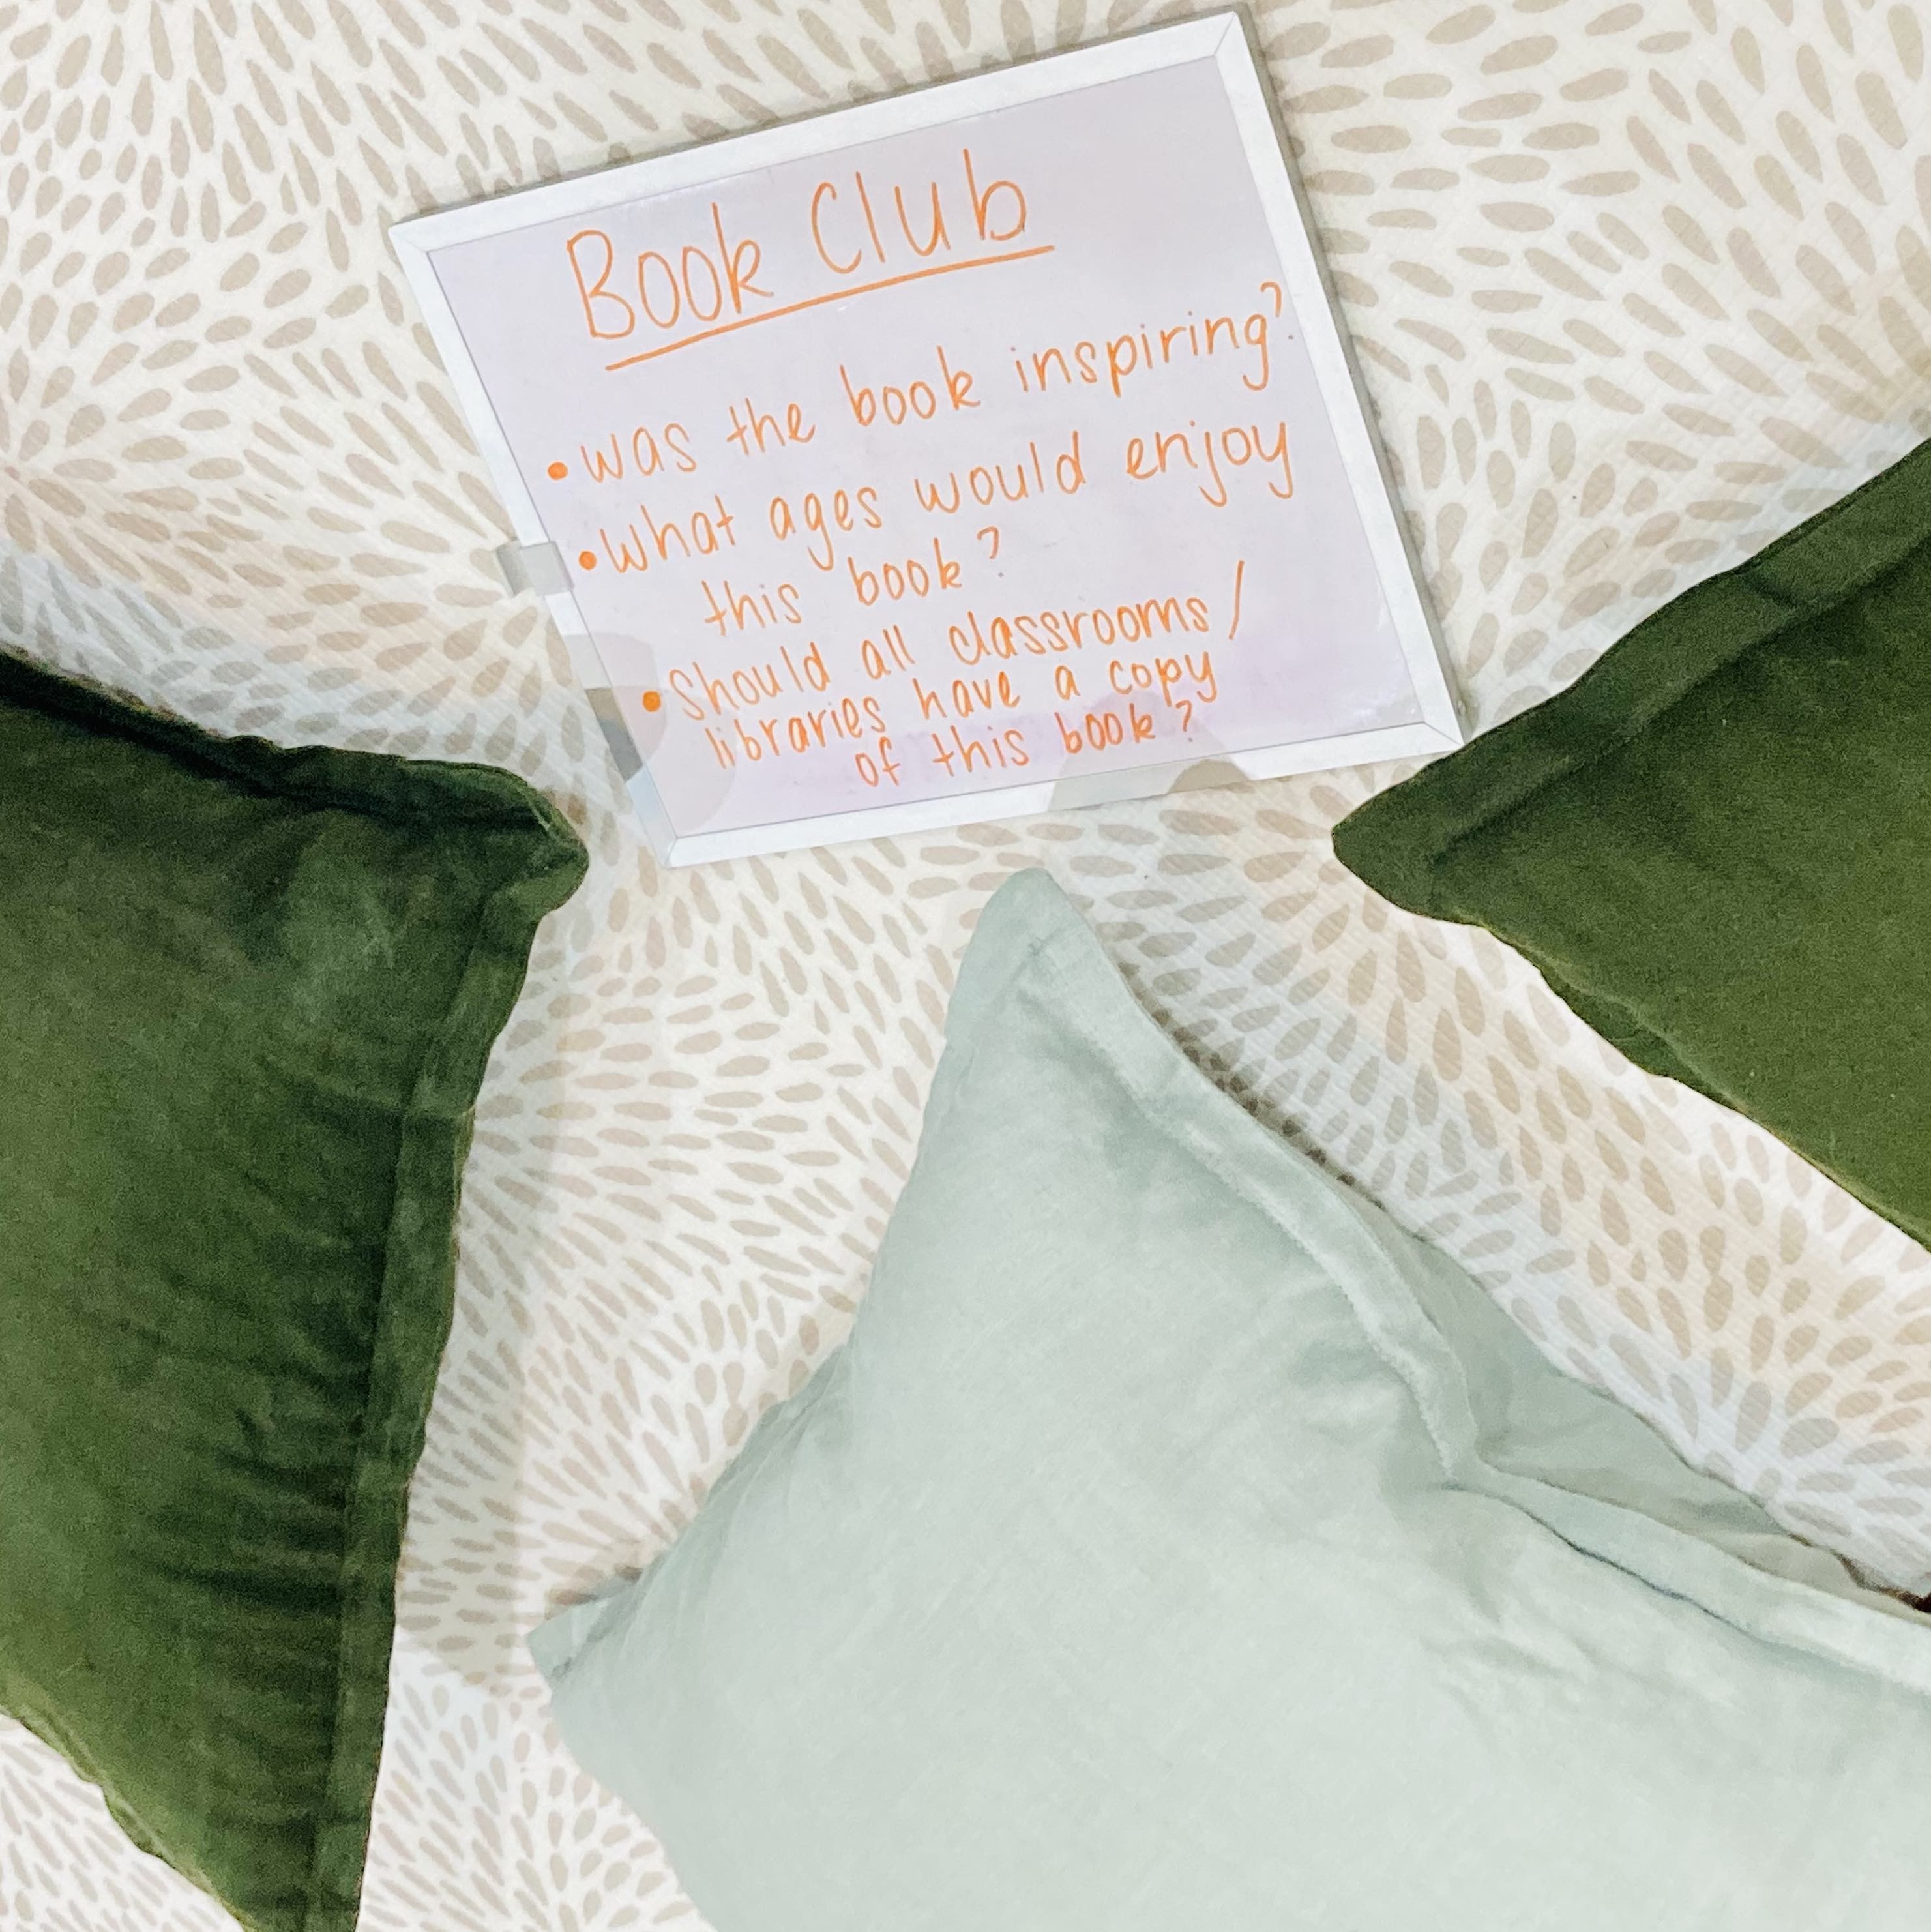 Book Club
• was the book inspiring?
• What ages would enjoy
this book?
• Should all classrooms/
libraries have a copy
of this book?